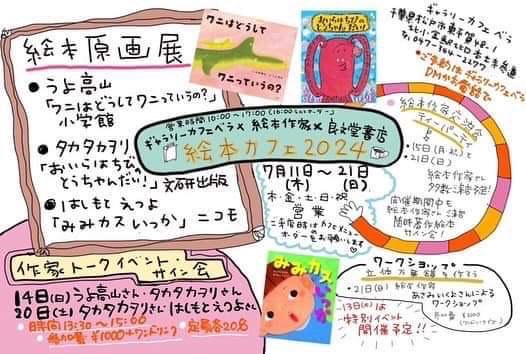 絵本原画展
●うよ高山
「ワニはどうしてワニっていうの?」
小学館
●タカタカヲリ
「おいらはちびのとうちゃんだい!」
文研出版
●はしもとえつよ
「みみカスいっか」ニコモ
ワニはどうして
ワニっていうの?
おいらはちびの
とうちゃんだい!
営業時間10:00〜17:00(16:00
ギャラリーカフェベラ×絵本作家×良文堂書店
絵本カフェ2024
7月11日〜21日
(木)(日)
木・金・土・日・祝
営業
ご来店時はカフェメニューの
オーダーをお願いします
ギャラリーカフェベラ
千葉県松戸市
●ご予約はギャラリーカフェベラ
DMか電話で
絵本作家交流会
ティーパーティー
●15日(月・祝)と
●21日(日)
絵本作家さん
多数ご来廊!
開催期間中も
絵本作家さんご来廊
随時著作絵本
サイン会!
作家トークイベント・
サイン会
14日(日)うよ高山さん・タカタカヲリさん
20日(土)タカタカヲリさん はしもとえつよさん
●時間13:30〜15:00
●参加費 ¥1000+ワンドリンク
●定員各20名
みみカス
いっか
ワークショップ
立体万華鏡を作ろう
●21日(日)絵本作家
あさみいくよさんによる
ワークショップ
13日(土)は
特別イベント
開催予定!!